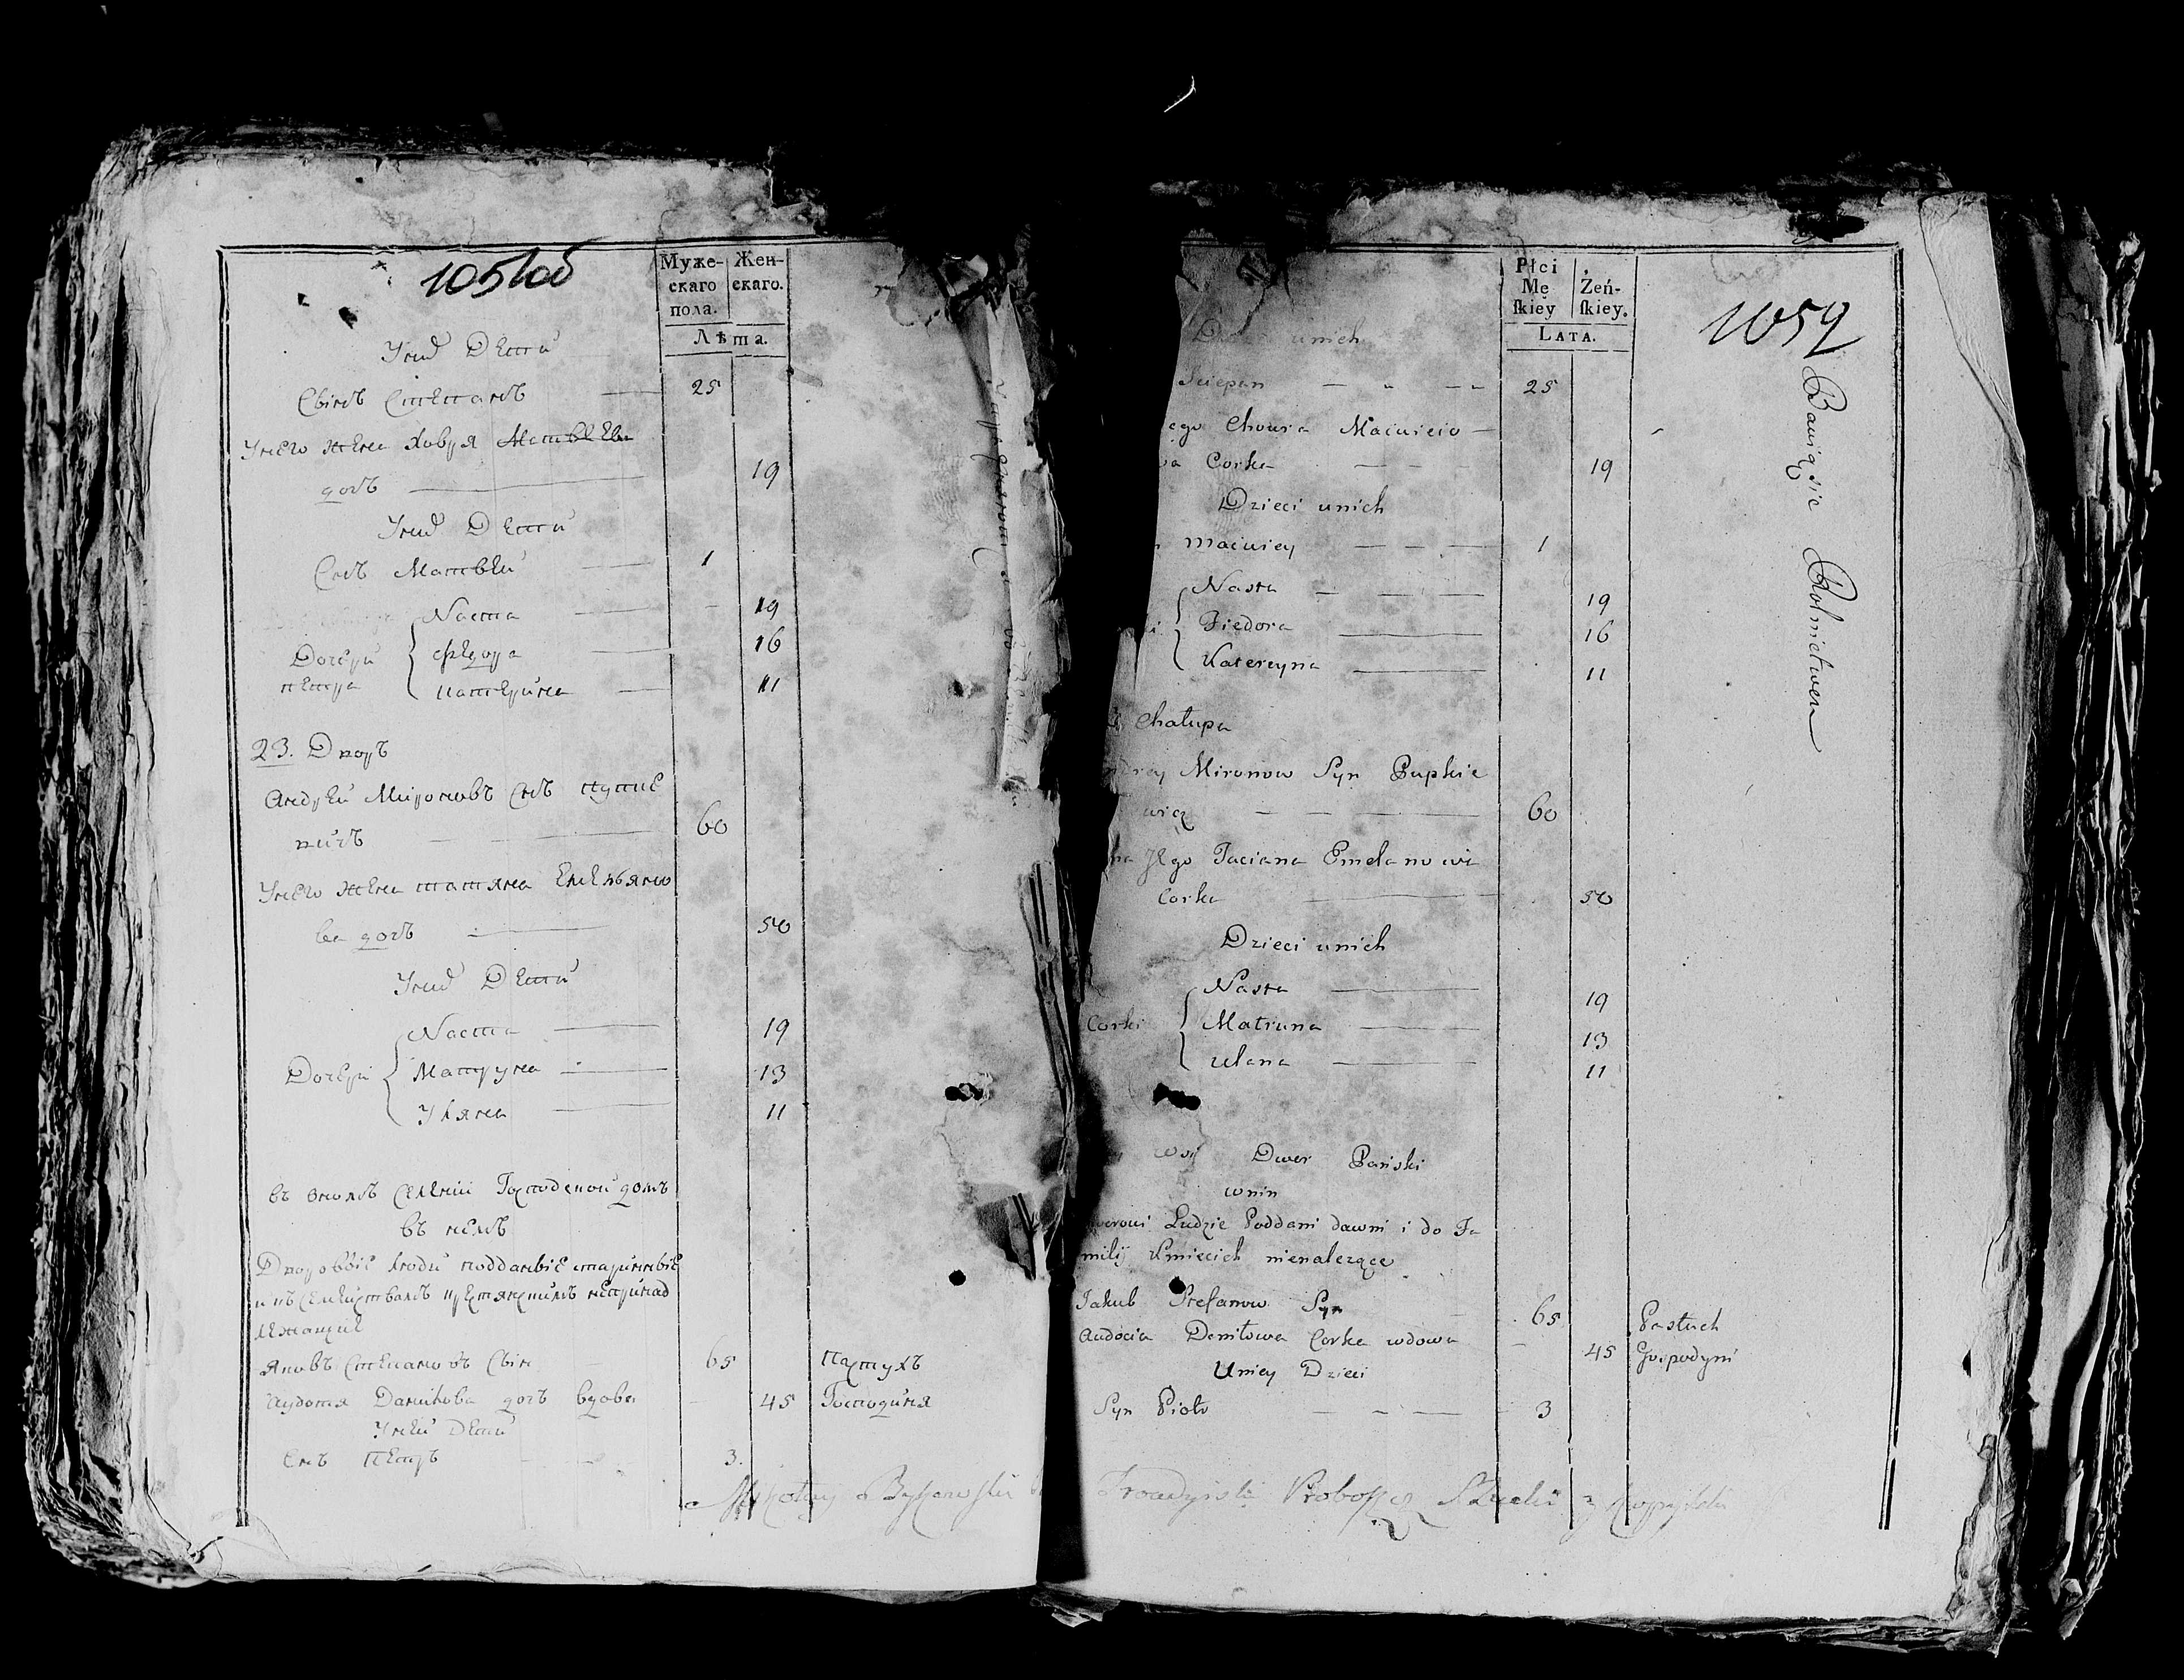 1051об
Муже-
скаго
пола.
Жен-
скаго.
Лѣта.
У нихъ Дети
Сынъ Степанъ 25
У него жена Ховря Матвѣева
дочь 19
У нихъ Дети
Снъ Матвѣй 1
Дочери
Петра
Наста 19
Федора 16
Катерина 11
23. Дворъ
Андрей Мироновъ Снъ Пупке
вичъ 60
У него жена Татяна Емельяно
ва дочь 50
У нихъ Дети
Дочери
Наста 19
Матруна 13
Уляна 11
въ ономъ селении Господской домъ
въ немъ
Дворовые люди подданые старинные
и къ семействамъ крестянскимъ непринад
лежащие
Яковъ Степановъ Сынъ 65 Пастухъ
Аудотя Данилова дочь вдова 45 Господиня
У ней Дети
Снъ Петръ 3.
Płci
Mę
ſkiey
Żeń-
ſkiey.
LATA.
1052
Dzieci u nich
Sciepan 25
ego Chowra Maciueio
wa Corka 19
Dzieci u nich
Maciuiey 1
Nasta 19
Fiedora 16
Katereyna 11
Chałupa
ndrey Mironow Syn Pupkie
wicz 60
na Jego Taciana Emelanowa
Corka 50
Dzieci u nich
Corki
Nasta 19
Matruna 13
Ulana 11
wsi Dwor Pański
w nim
worowi Ludzie Poddani dawni i do Fa
milij Kmiecich nienależące
Jakub Stefanow Syn 65 Pastuch
Audocia Daniłowa Corka wdowa 45 Gospodyni
U niey Dzieci
Syn Piotr 3
Bawią się Rolnictwem
Proboszcz Słucki